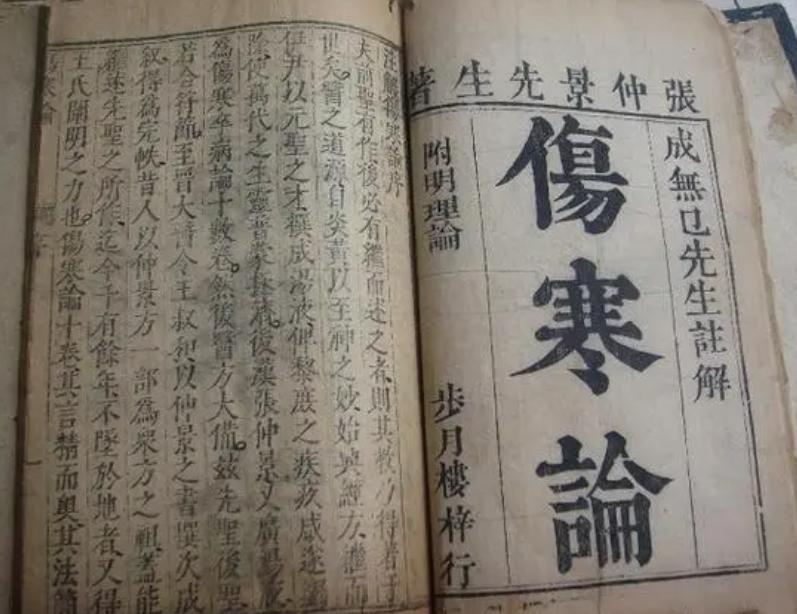 張仲景先生著
成無已先生註解
傷寒論
附明理論
步月樓梓行
注解傷寒論序
夫前聖有作後必有繼而述之者則其教乃得著于
世矣。醫之道源自炎黃以至神之妙始興經方繼而
伊尹以元聖之才撰成湯液俾黎庶之疾疢咸遂
除使萬代之生靈普蒙拯濟。後漢張仲景又廣湯液
為傷寒卒病論十數卷。然後醫方大備。茲先聖後聖
若合符節。至晉太醫令王叔和以仲景之書撰次成
叙得為完帙。昔人以仲景方一部為衆方之祖。蓋能
繼述先聖之所作迄今千有餘年不墜於地者又得
王氏闡明之力也。傷寒論十卷其言精而奧其法簡
傷寒論